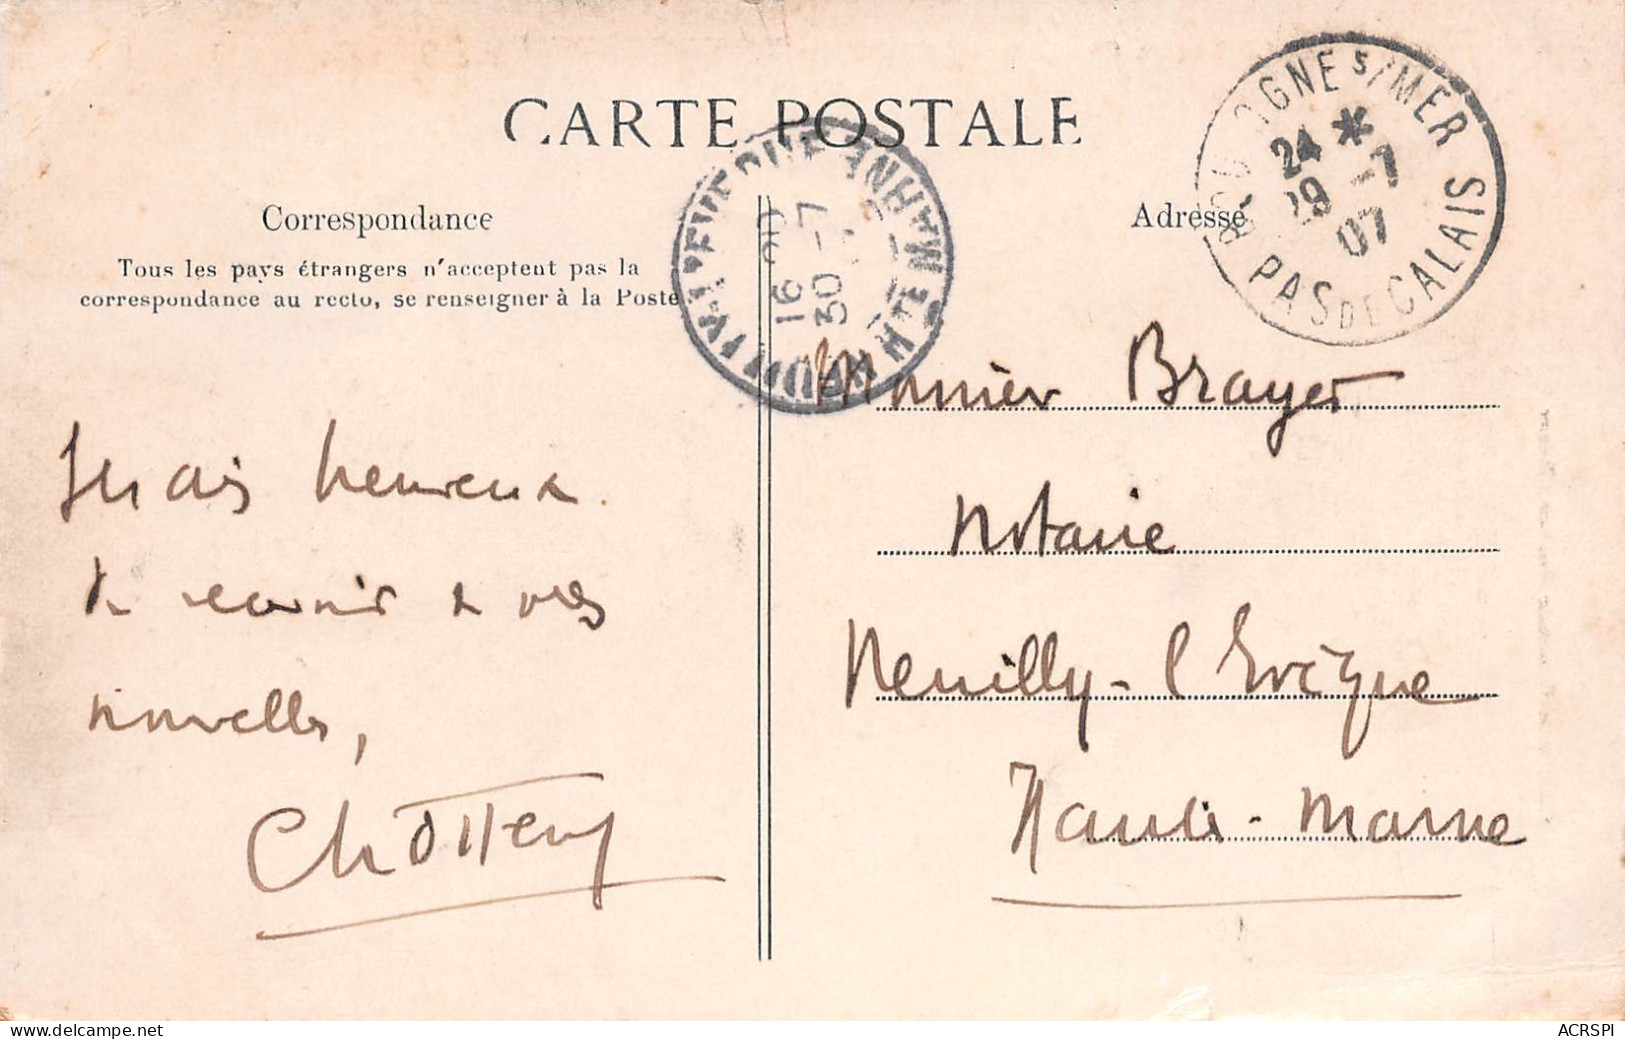 CARTE POSTALE
BOULOGNE S/MER
PAS DE CALAIS
24 * -7
29 07
NEUILLY-L'EVEQUE HTE MARNE
16
30 -7
Correspondance
Tous les pays étrangers n'acceptent pas la
correspondance au recto, se renseigner à la Poste
Adresse
Serais heureux
de recevoir de vos
nouvelles,
Monsieur Brayer
Notaire
Neuilly-l'Evêque
Haute-Marne
www.delcampe.net
ACRSPI